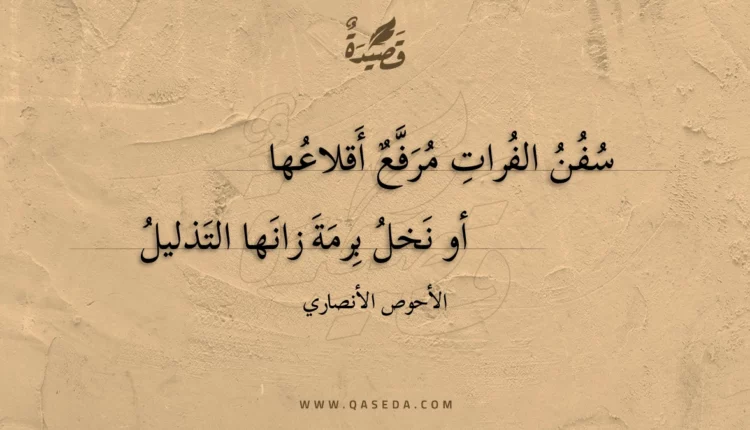 قَصِيدَةٌ
سُفُنُ الفُراتِ مُرَفَّعٌ أَقلاعُها
أو نَخلُ بِرمَةَ زانَها التَذليلُ
الأحوص الأنصاري
WWW.QASEDA.COM